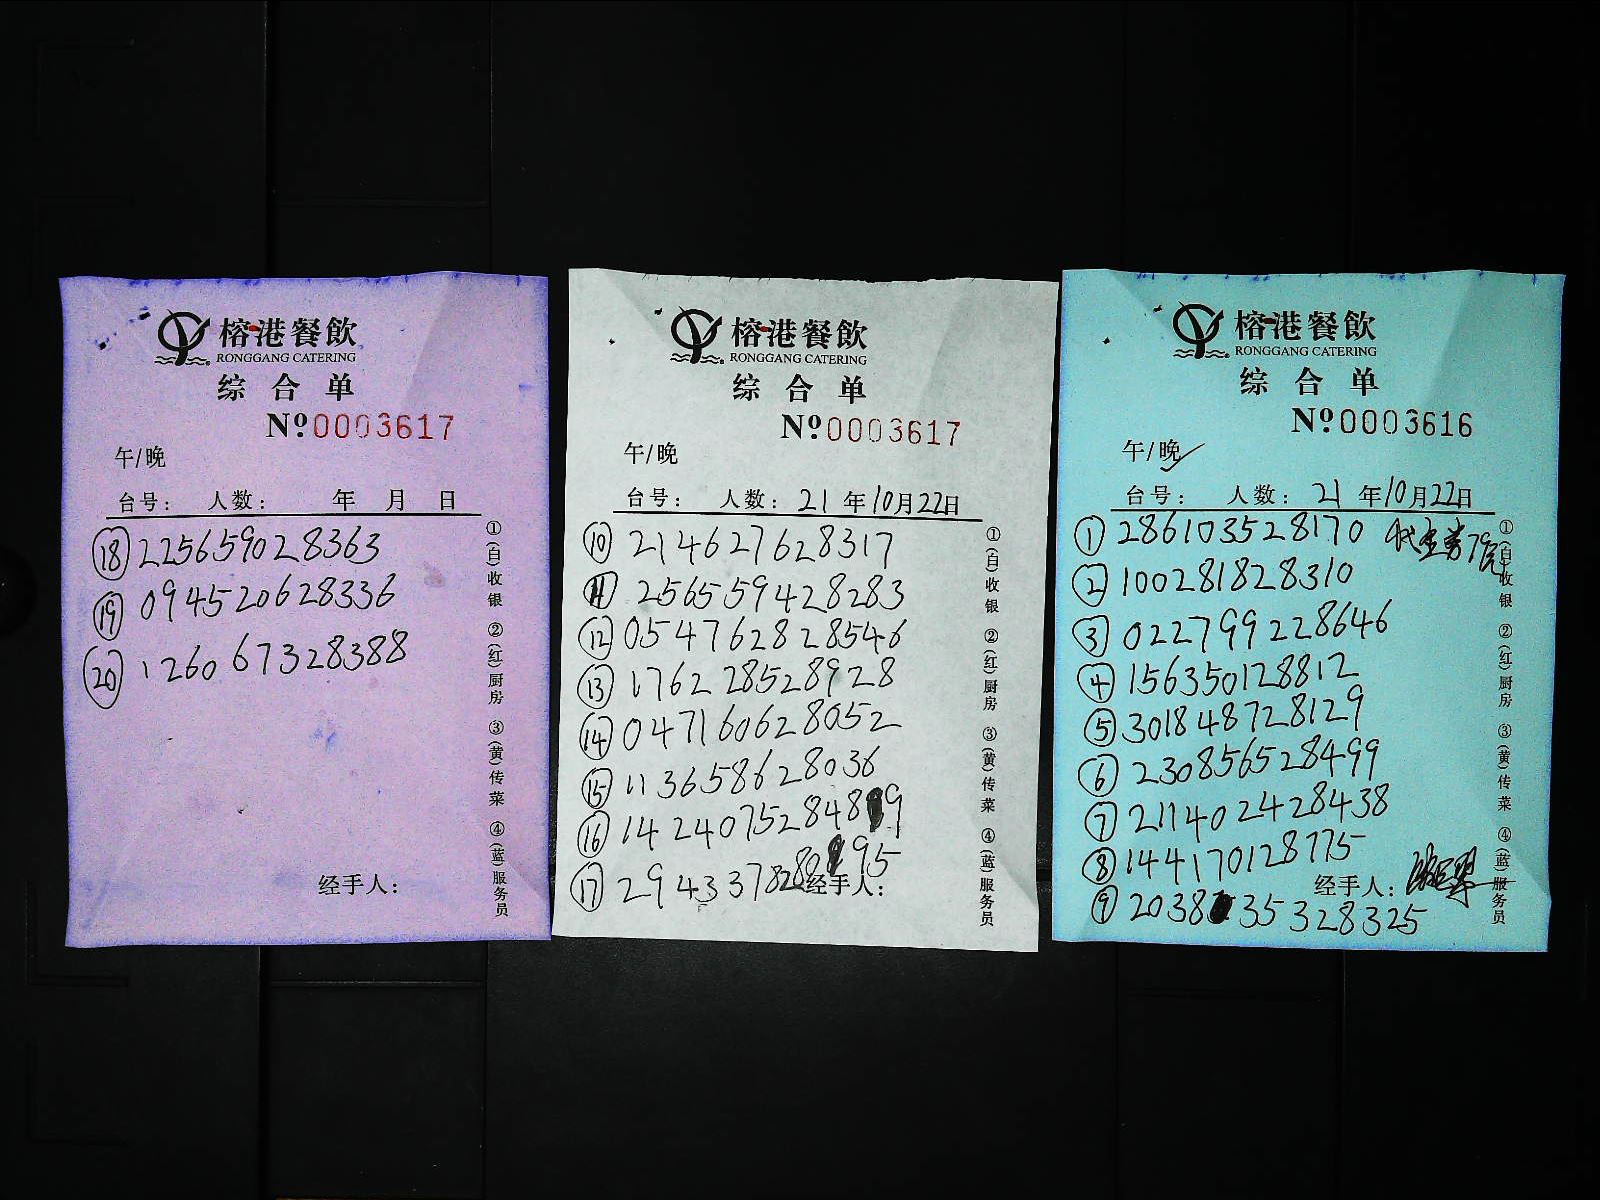 榕港餐飲
RONGGANG CATERING
综合单
Nº0003617
午/晚
台号： 人数： 年 月 日
⑱ 225659028363
⑲ 094520628336
⑳ 126067328388
经手人：
①(白)收银 ②(红)厨房 ③(黄)传菜 ④(蓝)服务员
榕港餐飲
RONGGANG CATERING
综合单
Nº0003617
午/晚
台号： 人数： 21年10月22日
⑩ 214627628317
⑪ 256559428283
⑫ 054762828546
⑬ 176228528928
⑭ 047160628052
⑮ 113658628036
⑯ 142407528489
⑰ 294337828095
经手人：
①(白)收银 ②(红)厨房 ③(黄)传菜 ④(蓝)服务员
榕港餐飲
RONGGANG CATERING
综合单
Nº0003616
午/晚✓
台号： 人数： 21年10月22日
① 286103528170 代金券79元
② 100281828310
③ 022799228646
④ 156350128812
⑤ 301848728129
⑥ 230856528499
⑦ 211402428438
⑧ 144170128775
经手人：
⑨ 203835328325
①(白)收银 ②(红)厨房 ③(黄)传菜 ④(蓝)服务员